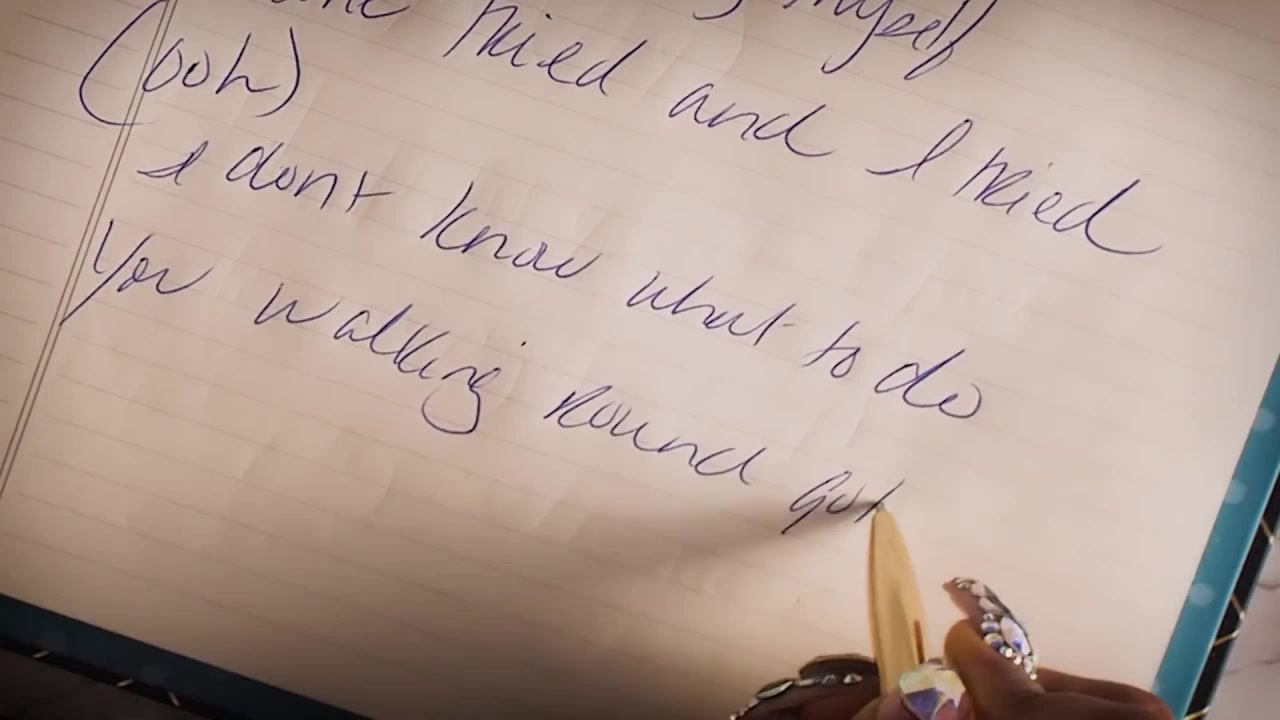 myself
tried and I tried
(ooh)
I dont know what to do
You walking round got